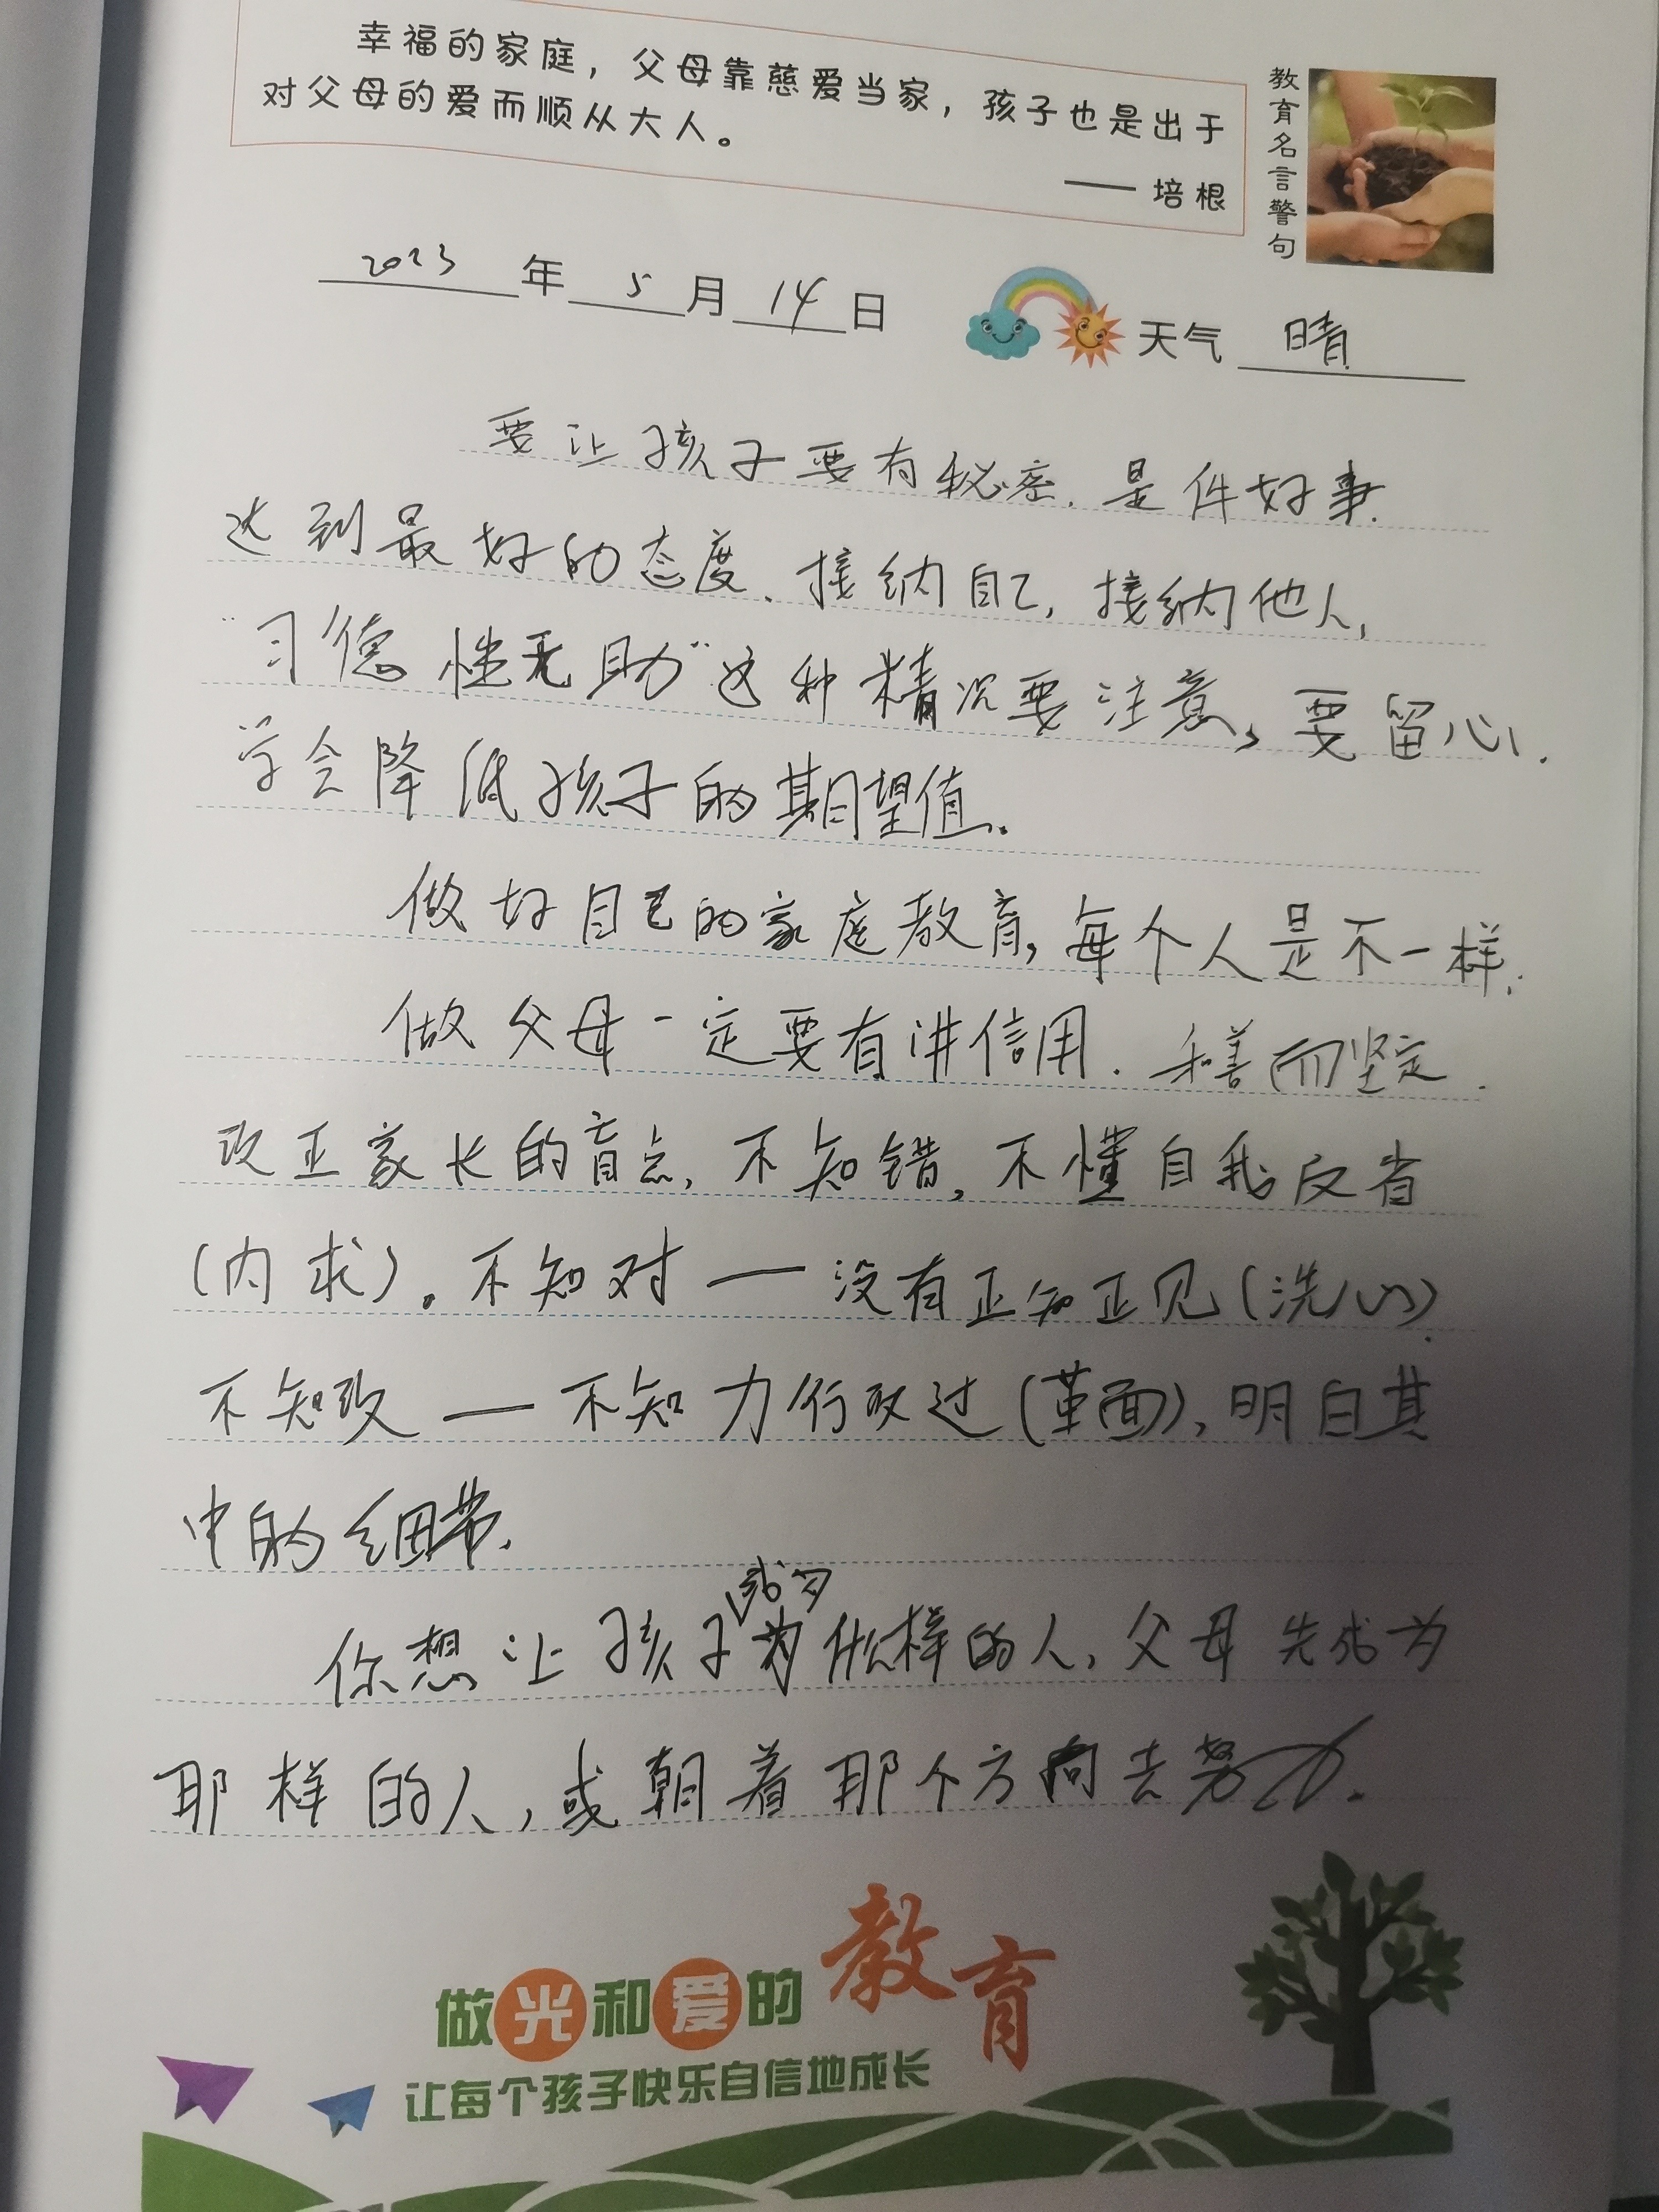 幸福的家庭，父母靠慈爱当家，孩子也是出于
对父母的爱而顺从大人。
—— 培根
教育名言警句
2023年5月14日 天气 晴
要让孩子要有秘密.是件好事.
达到最好的态度.接纳自己,接纳他人,
"习德性无助"这种精况要注意,要留心.
学会降低孩子的期望值.
做好自己的家庭教育,每个人是不一样.
做父母一定要有讲信用.和善而坚定.
改正家长的盲点,不知错,不懂自我反省
(内求)。不知对——没有正知正见(洗心).
不知改——不知力行改过(革面),明白其
中的细带.
你想让孩子成为什么样的人,父母先成为
那样的人,或朝着那个方向去努力.
做光和爱的教育
让每个孩子快乐自信地成长